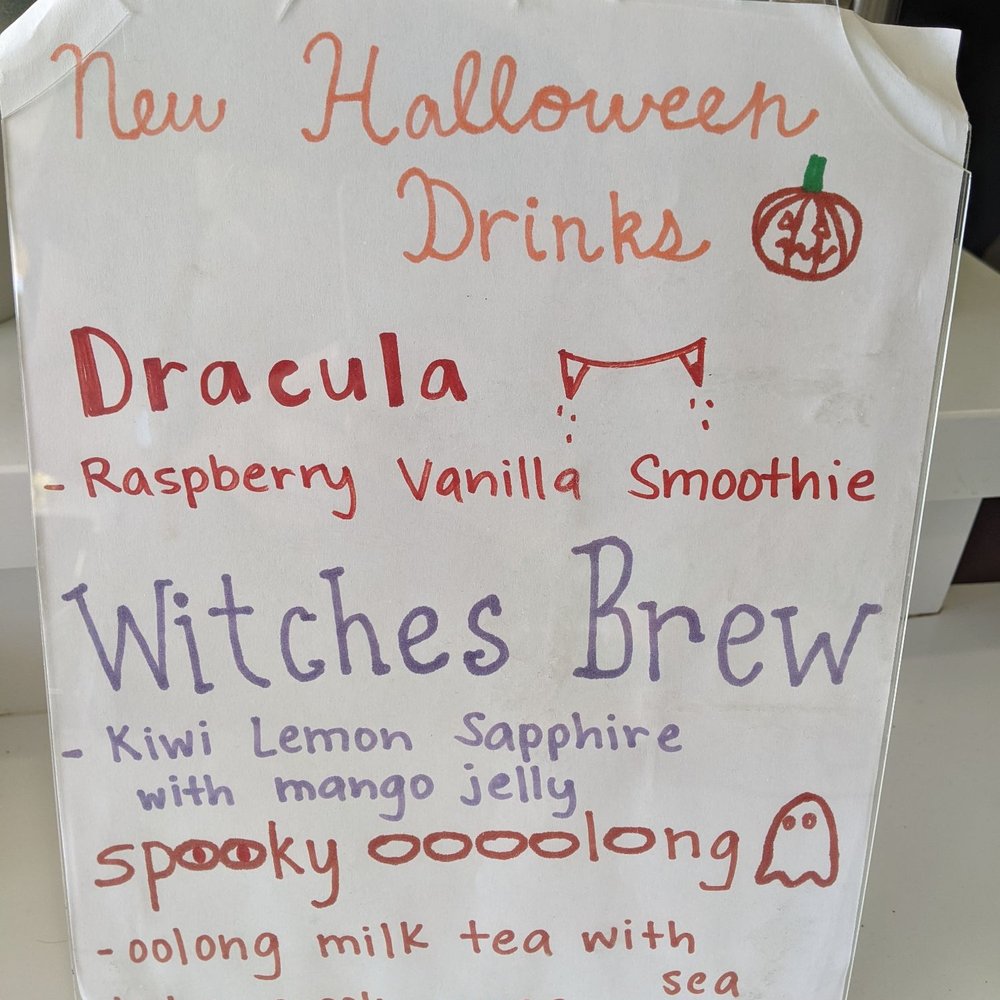 New Halloween
Drinks
Dracula
- Raspberry Vanilla Smoothie
Witches Brew
- Kiwi Lemon Sapphire
with mango jelly
spooky oooolong
- oolong milk tea with
sea